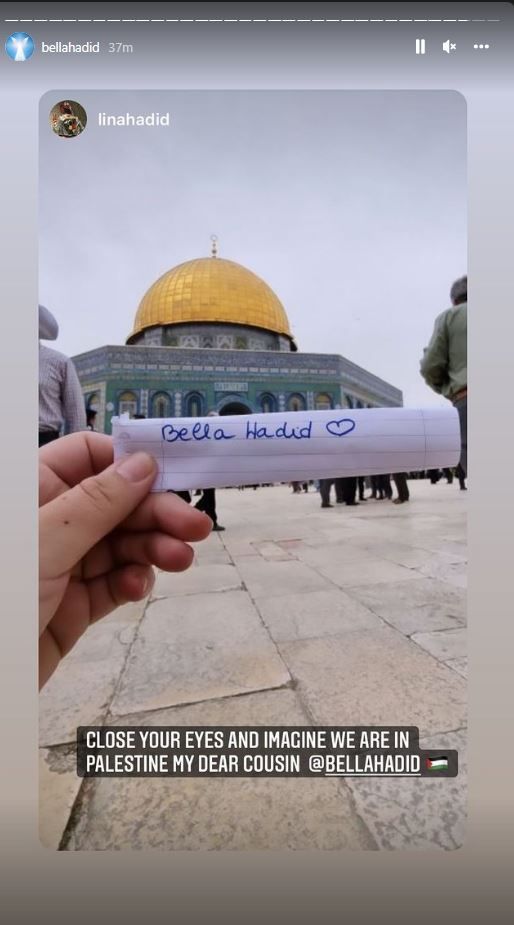 bellahadid 37m
linahadid
Bella Hadid ♡
CLOSE YOUR EYES AND IMAGINE WE ARE IN
PALESTINE MY DEAR COUSIN @BELLAHADID 🇵🇸